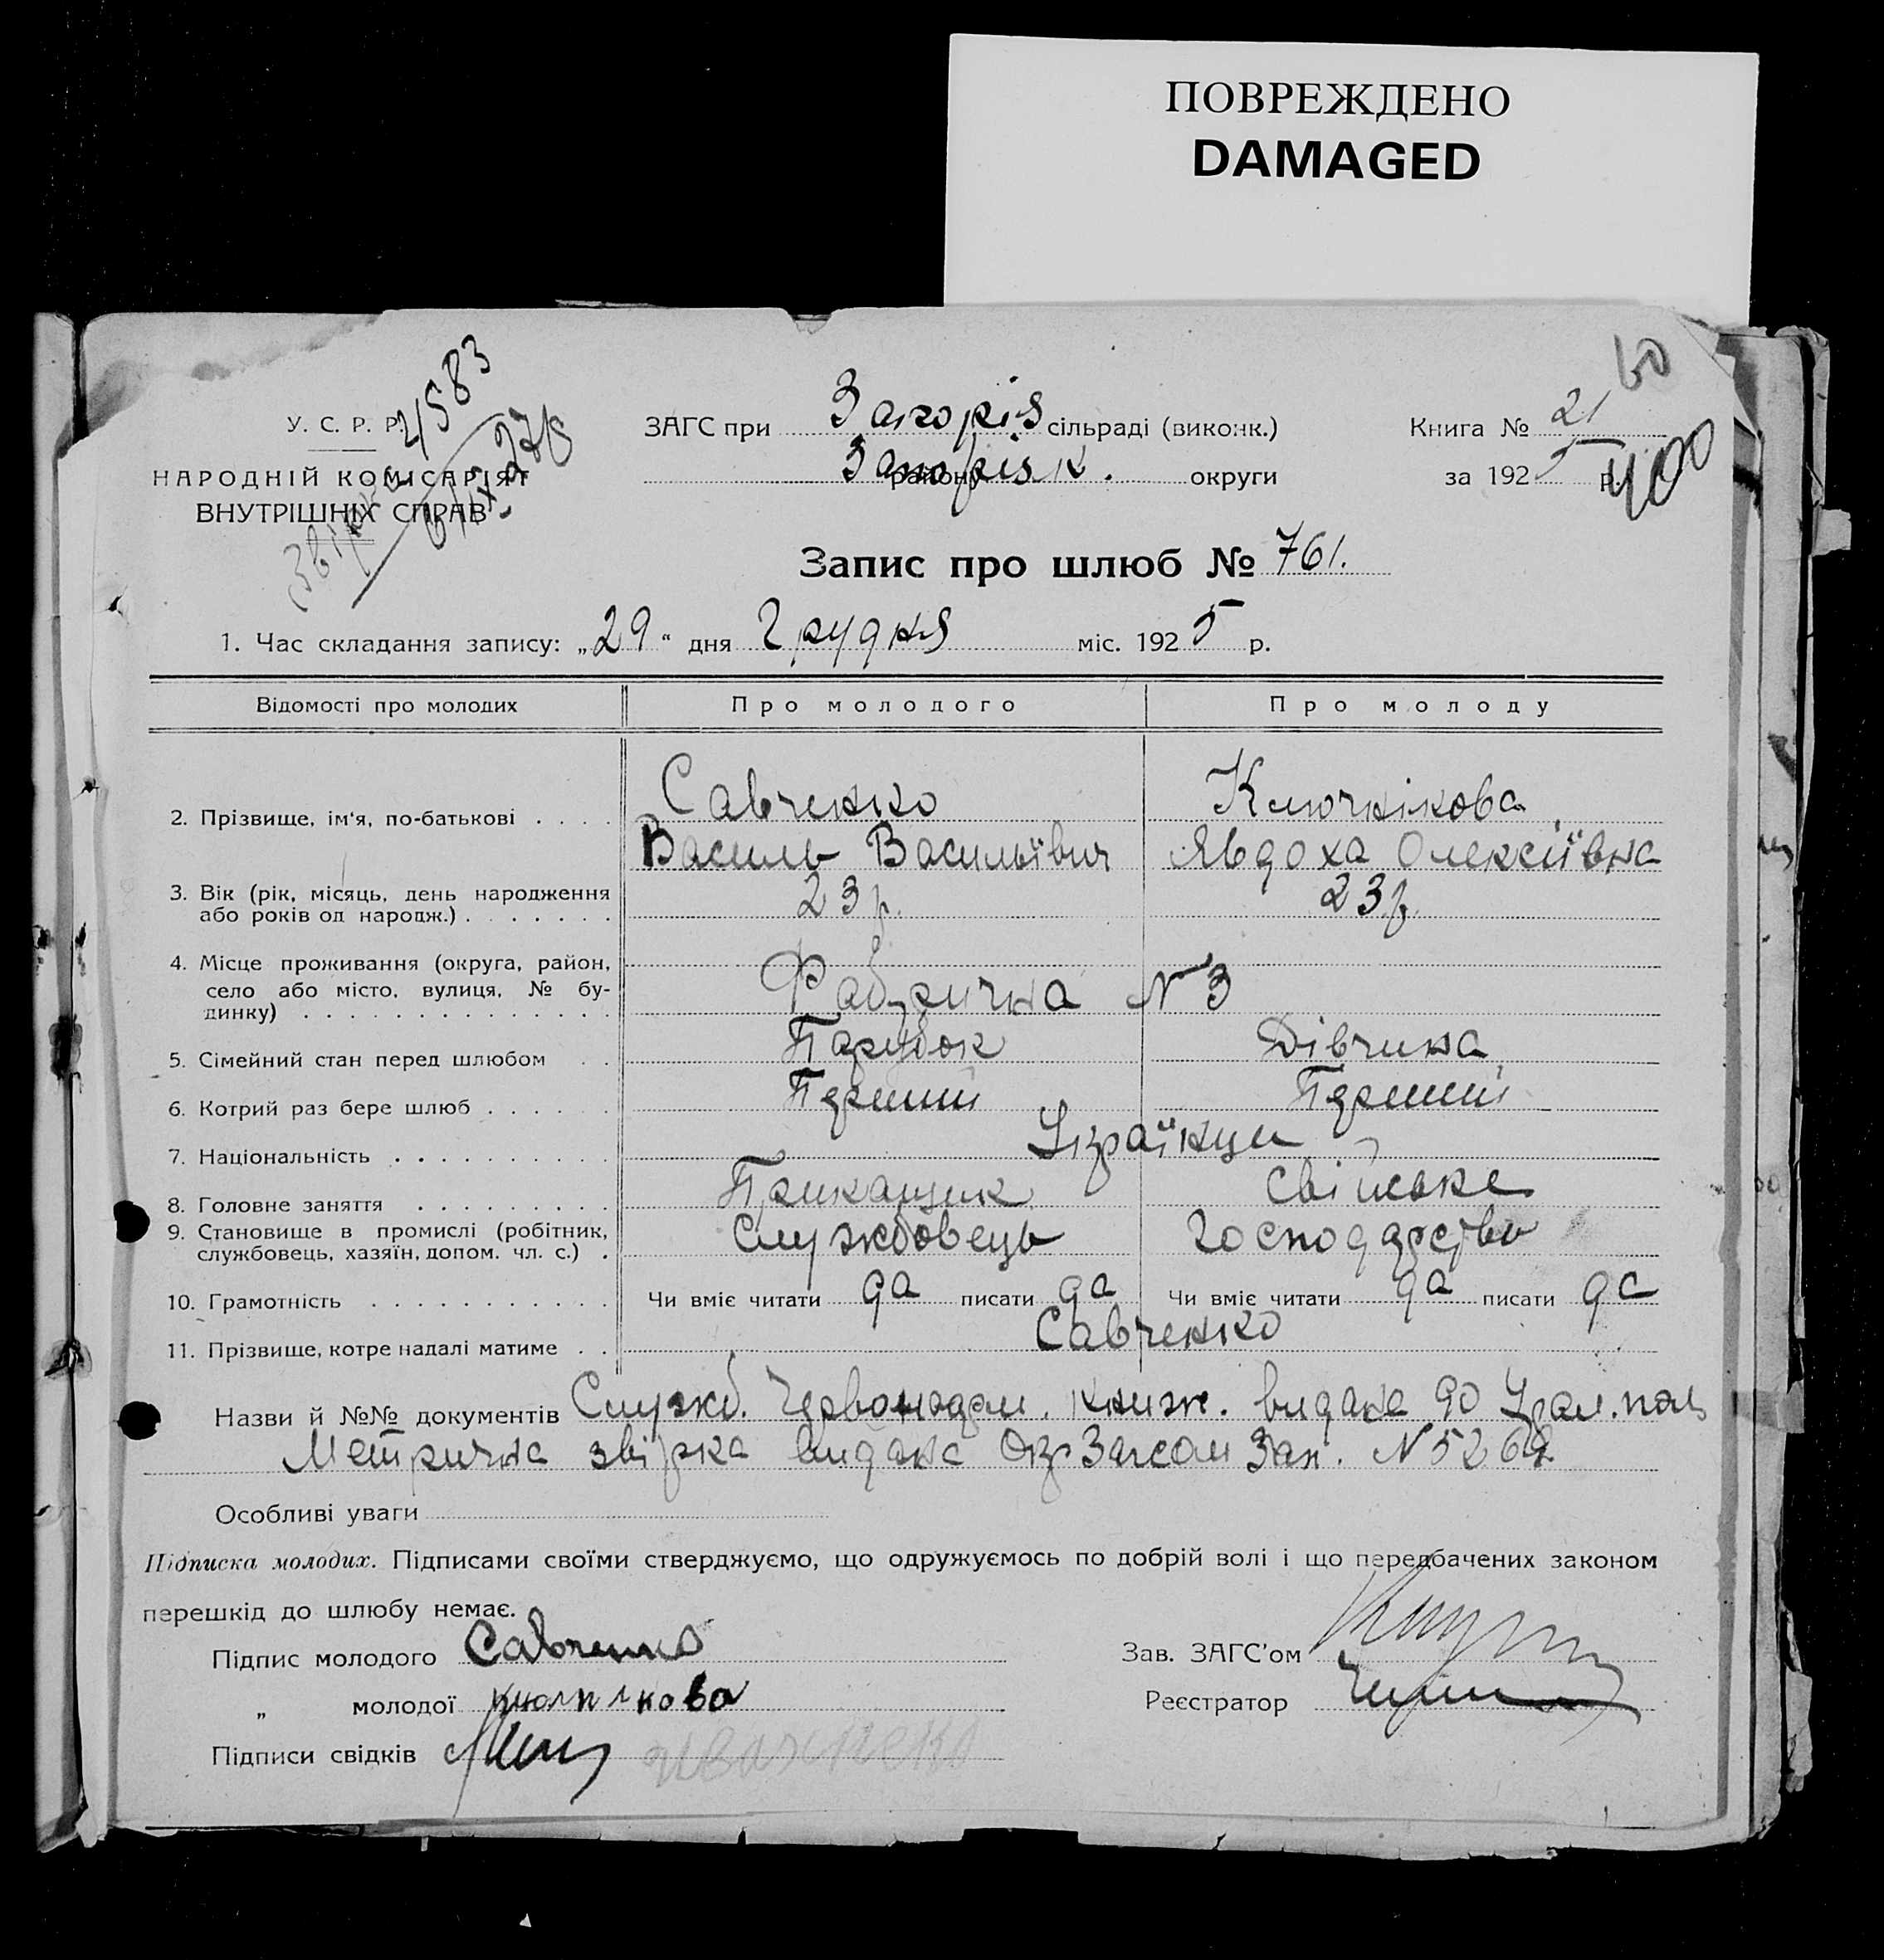 ПОВРЕЖДЕНО
DAMAGED
60
400
У. С. Р. Р.
НАРОДНІЙ КОМІСАРІЯТ
ВНУТРІШНІХ СПРАВ
Звірка 4583
ЗАГС при Запоріз сільраді (виконк.)
району Запорізк. округи
Книга № 21
за 1925 р.
Запис про шлюб № 761.
1. Час складання запису: „29“ дня Грудня міс. 1925 р.
Відомості про молодих Про молодого Про молоду
2. Прізвище, ім'я, по-батькові . . . . Савченко Ключнікова
Василь Васильївич Явдоха Олексіївна
3. Вік (рік, місяць, день народження
або років од народж.) . . . . . . . 23 р. 23 р.
4. Місце проживання (округа, район,
село або місто, вулиця, № бу-
динку) . . . . . . . . . . . . . . Фабрична N 3
5. Сімейний стан перед шлюбом . . Парубок Дівчина
6. Котрий раз бере шлюб . . . . . . Перший Перший
7. Національність . . . . . . . . . . Українци
8. Головне заняття . . . . . . . . . Прикащик Свійське
9. Становище в промислі (робітник,
службовець, хазяїн, допом. чл. с.) . Службовець Господарство
10. Грамотність . . . . . . . . . . . Чи вміє читати да писати да Чи вміє читати да писати да
11. Прізвище, котре надалі матиме . . Савченко
Назви й №№ документів Служб. Червоноарм. книж. видана 90 Урал. полк
Метрична звірка видана ОкрЗагсом Зап. N 5262
Особливі уваги
Підписка молодих. Підписами своїми стверджуємо, що одружуємось по добрій волі і що передбачених законом
перешкід до шлюбу немає.
Підпис молодого Савченко
„ молодої Ключнкова
Підписи свідків
Зав. ЗАГС'ом
Реєстратор